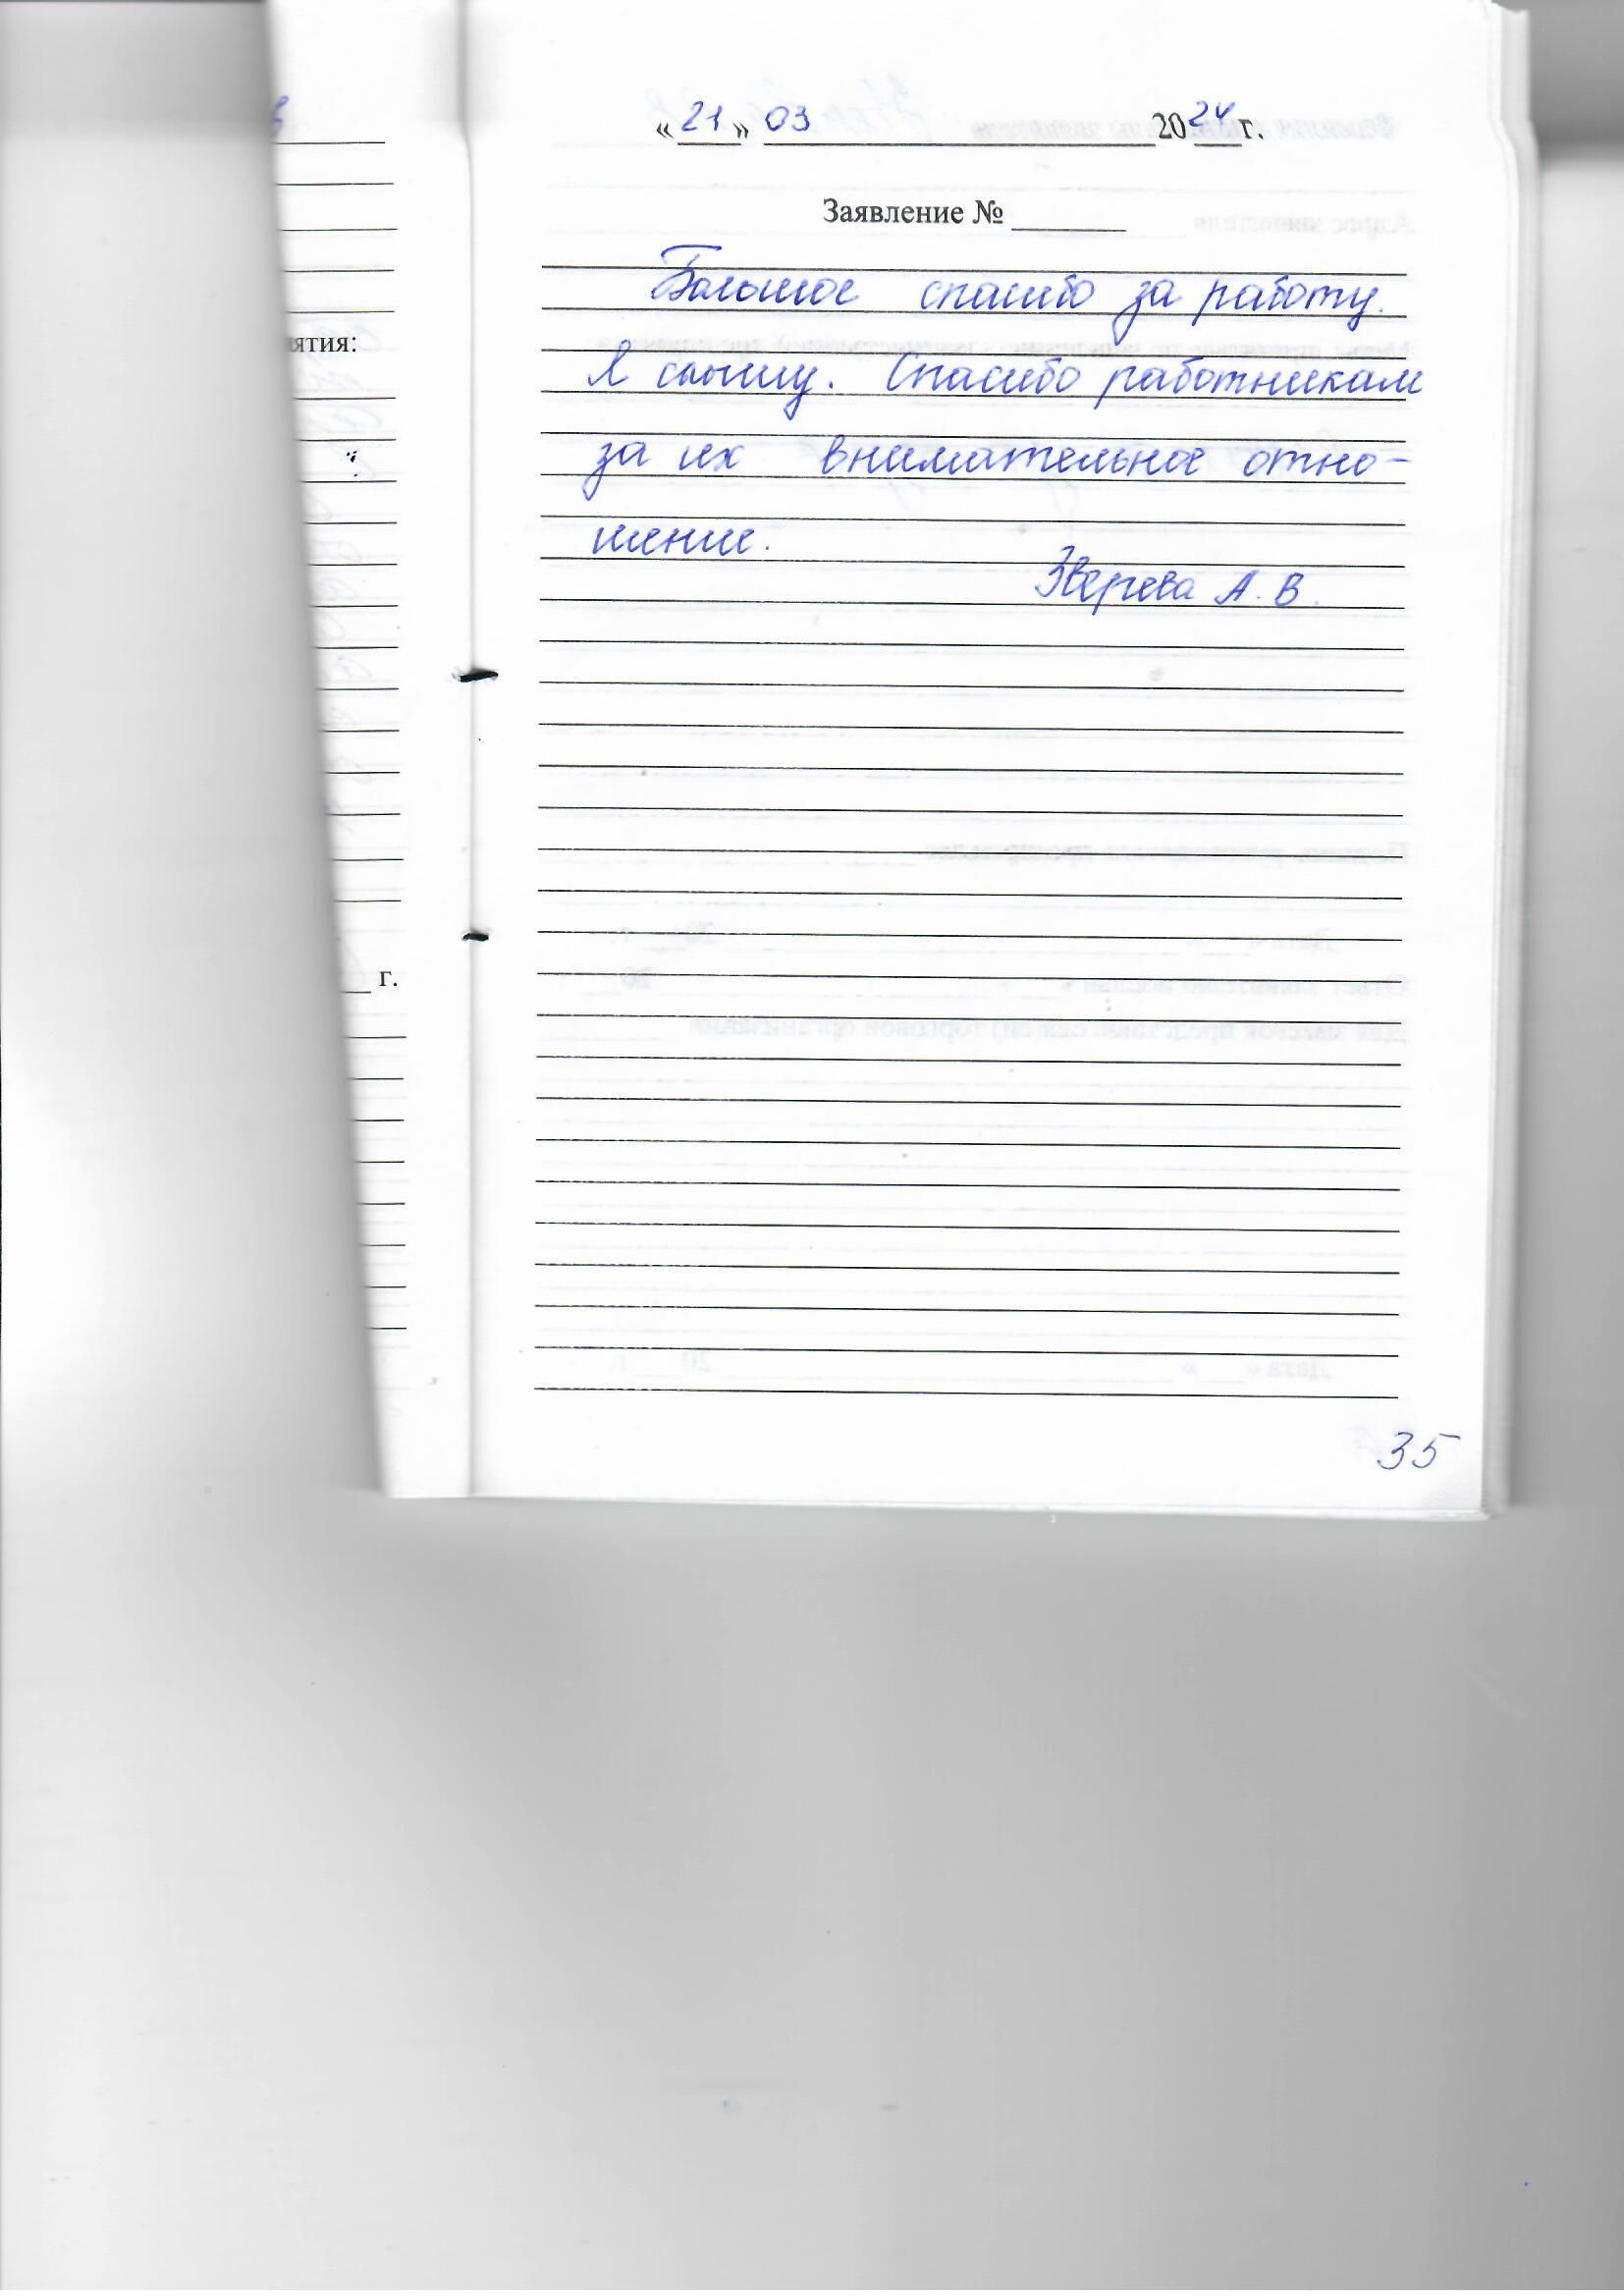 «21» 03 2024 г.
Заявление №
Большое спасибо за работу.
Я слышу. Спасибо работникам
за их внимательное отно-
шение.
Зверева А. В.
ятия:
г.
35